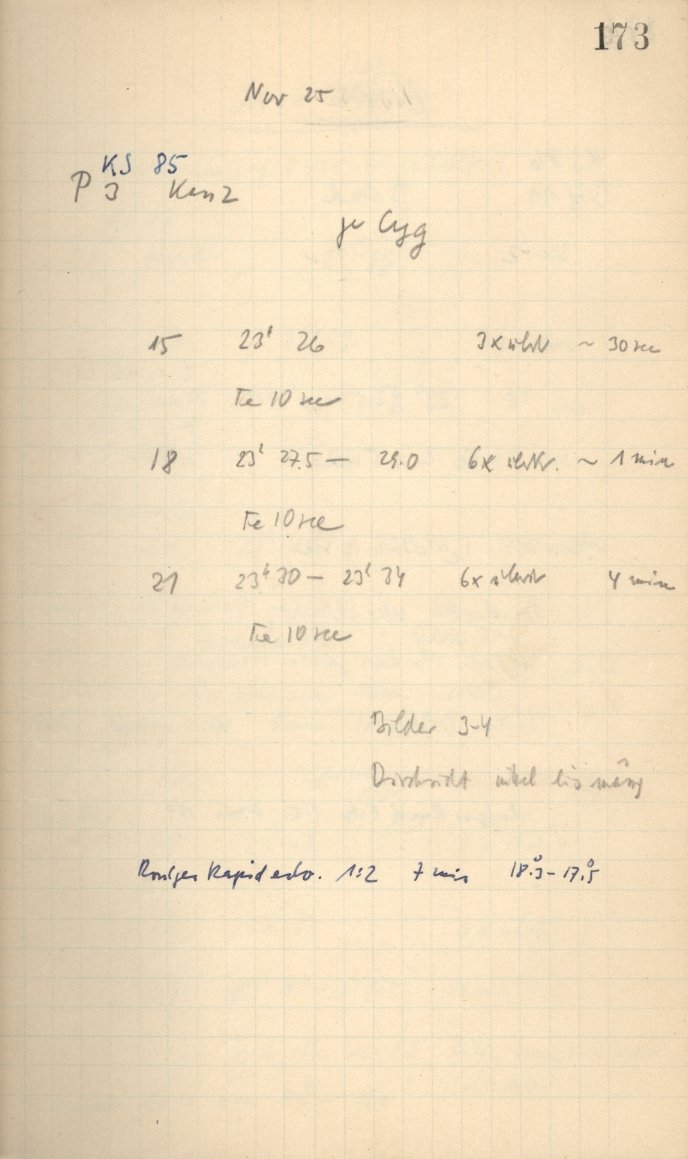 173
Nov 25
KS 85
P 3 Kass 2
γ Cyg
15 23ʰ 26 3x ~ 30 sec
Fe 10 sec
18 23ʰ 27.5 — 29.0 6x ~ 1 min
Fe 10 sec
21 23ʰ 30 — 23ʰ 34 6x 4 min
Fe 10 sec
Bilder 3-4
Durchsicht mittel bis mäßig
Rapid 1:2 7 min 18°.3 - 17°.5